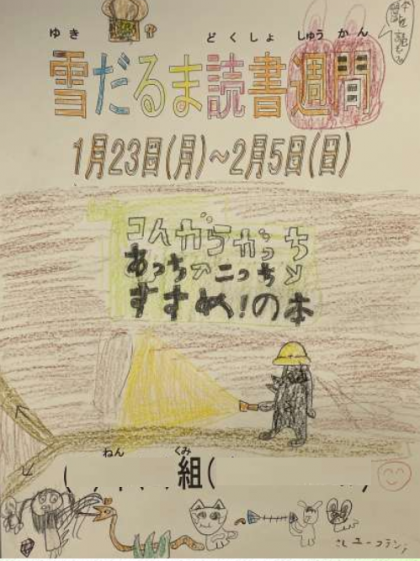 ゆき どくしょ しゅうかん
雪だるま読書週間
1月23日(月)～2月5日(日)
コんがらがっち
あっちコっち
すすめ!の本
ねん くみ
組(